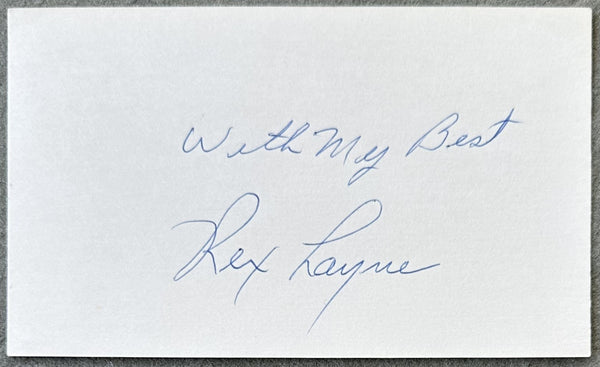 With My Best
Rex Layne